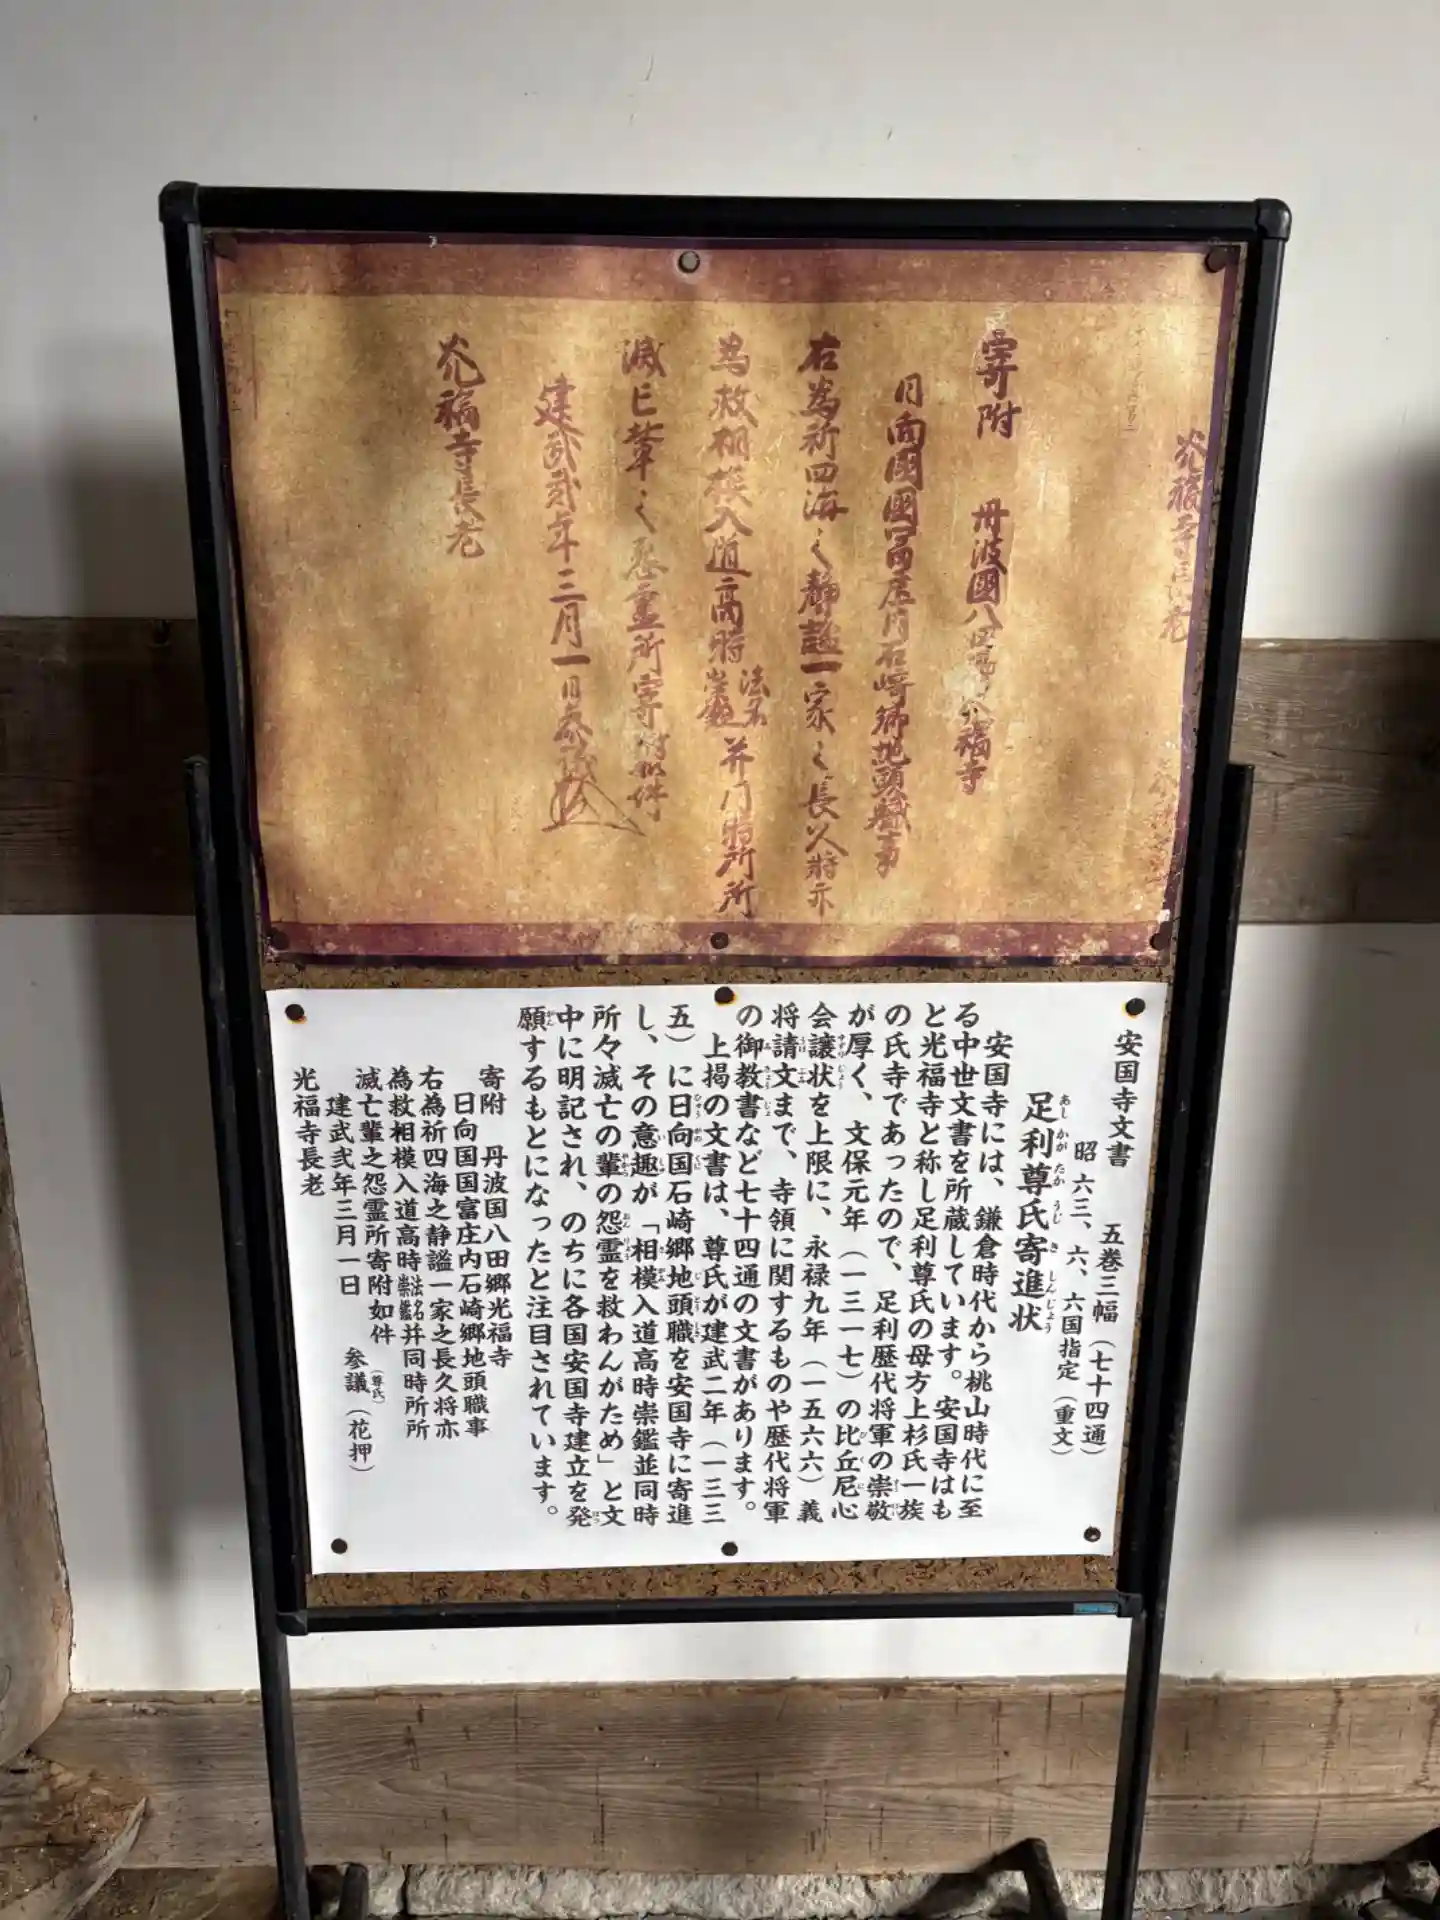 寄附 丹波國八田郷光福寺
日向國國富庄内石崎郷地頭職事
右為祈四海之静謐一家之長久将亦
為救相模入道高時法名崇鑑并同時所所
滅亡輩之怨霊所寄附如件
建武弐年三月一日参議
光福寺長老
安国寺文書 五巻三幅(七十四通)
昭 六三、六、六国指定(重文)
足利尊氏寄進状
あしかがたかうじきしんじょう
安国寺には、鎌倉時代から桃山時代に至
る中世文書を所蔵しています。安国寺はも
と光福寺と称し足利尊氏の母方上杉氏一族
の氏寺であったので、足利歴代将軍の崇敬
が厚く、文保元年(一三一七)の比丘尼心
会譲状を上限に、永禄九年(一五六六)義
将請文まで、寺領に関するものや歴代将軍
の御教書など七十四通の文書があります。
上掲の文書は、尊氏が建武二年(一三三
五)に日向国石崎郷地頭職を安国寺に寄進
し、その意趣が「相模入道高時崇鑑並同時
所々滅亡の輩の怨霊を救わんがため」と文
中に明記され、のちに各国安国寺建立を発
願するもとになったと注目されています。
寄附 丹波国八田郷光福寺
日向国国富庄内石崎郷地頭職事
右為祈四海之静謐一家之長久将亦
為救相模入道高時法名崇鑑并同時所所
滅亡輩之怨霊所寄附如件
建武弐年三月一日 参議(尊氏)(花押)
光福寺長老